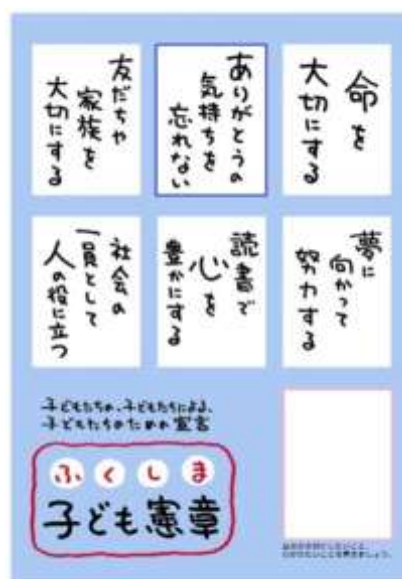 命を
大切にする
ありがとうの
気持ちを
忘れない
友だちや
家族を
大切にする
夢に
向かって
努力する
読書で
心を
豊かにする
社会の
一員として
人の役に立つ
子どもたちの、子どもたちによる、
子どもたちのための宣言
ふくしま
子ども憲章